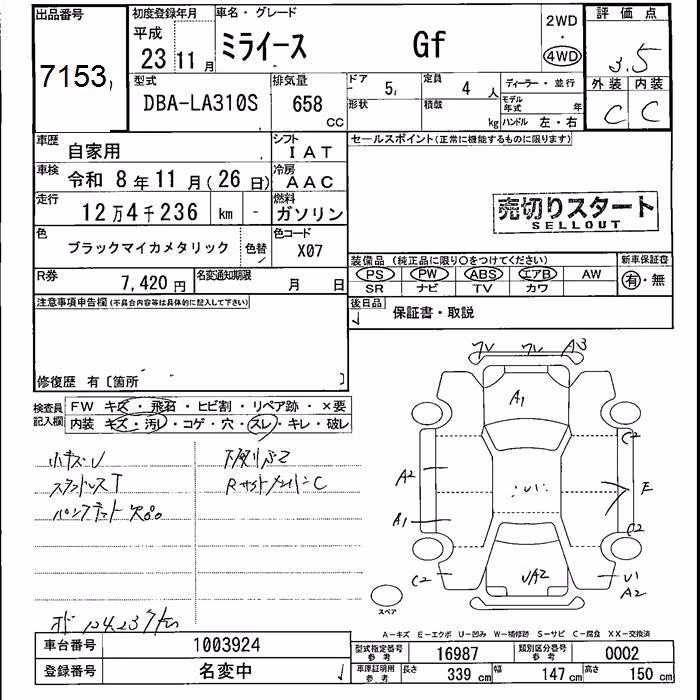 出品番号
7153
初度登録年月
平成
23 11 月
車名・グレード
ミライース Gf
2WD
・
4WD
評 価 点
3.5
外装 内装
C C
型式
DBA-LA310S
排気量
658
CC
ドア
5
定員
4 人
ディーラー・並行
形状
積載
kg
モデル年式
年
ハンドル 左・右
車歴
自家用
シフト
IAT
セールスポイント(正常に機能するものに限ります)
車検
令和 8 年 11 月(26 日)
冷房
AAC
走行
12 万 4 千 236 km -
燃料
ガソリン
売切りスタート
SELLOUT
色
ブラックマイカメタリック
色替
色コード
X07
装備品(純正品に限り○をつけてください)
PS PW ABS エアB AW
SR ナビ TV カワ
新車保証書
有・無
R券
7,420 円
名変通知期限
月 日
後日品
保証書・取説
注意事項申告欄(不具合内容等は具体的に記入して下さい)
修復歴 有〔箇所 〕
検査員記入欄
FW キズ・飛石・ヒビ割・リペア跡・×要
内装 キズ・汚レ・コゲ・穴・スレ・キレ・破レ
小キズU
下廻りS2
RサイドメンバーC
A3
A1
A2
A1
C2
C2
E
C2
UA2
U1
A2
スペア
A-キズ E-エクボ U-凹み W-補修跡 S-サビ C-腐食 XX-交換済
車台番号
1003924
登録番号
名変中
型式指定番号
参考
16987
類別区分番号
参考
0002
車庫証明用
参考
長さ 339 cm 幅 147 cm 高さ 150 cm